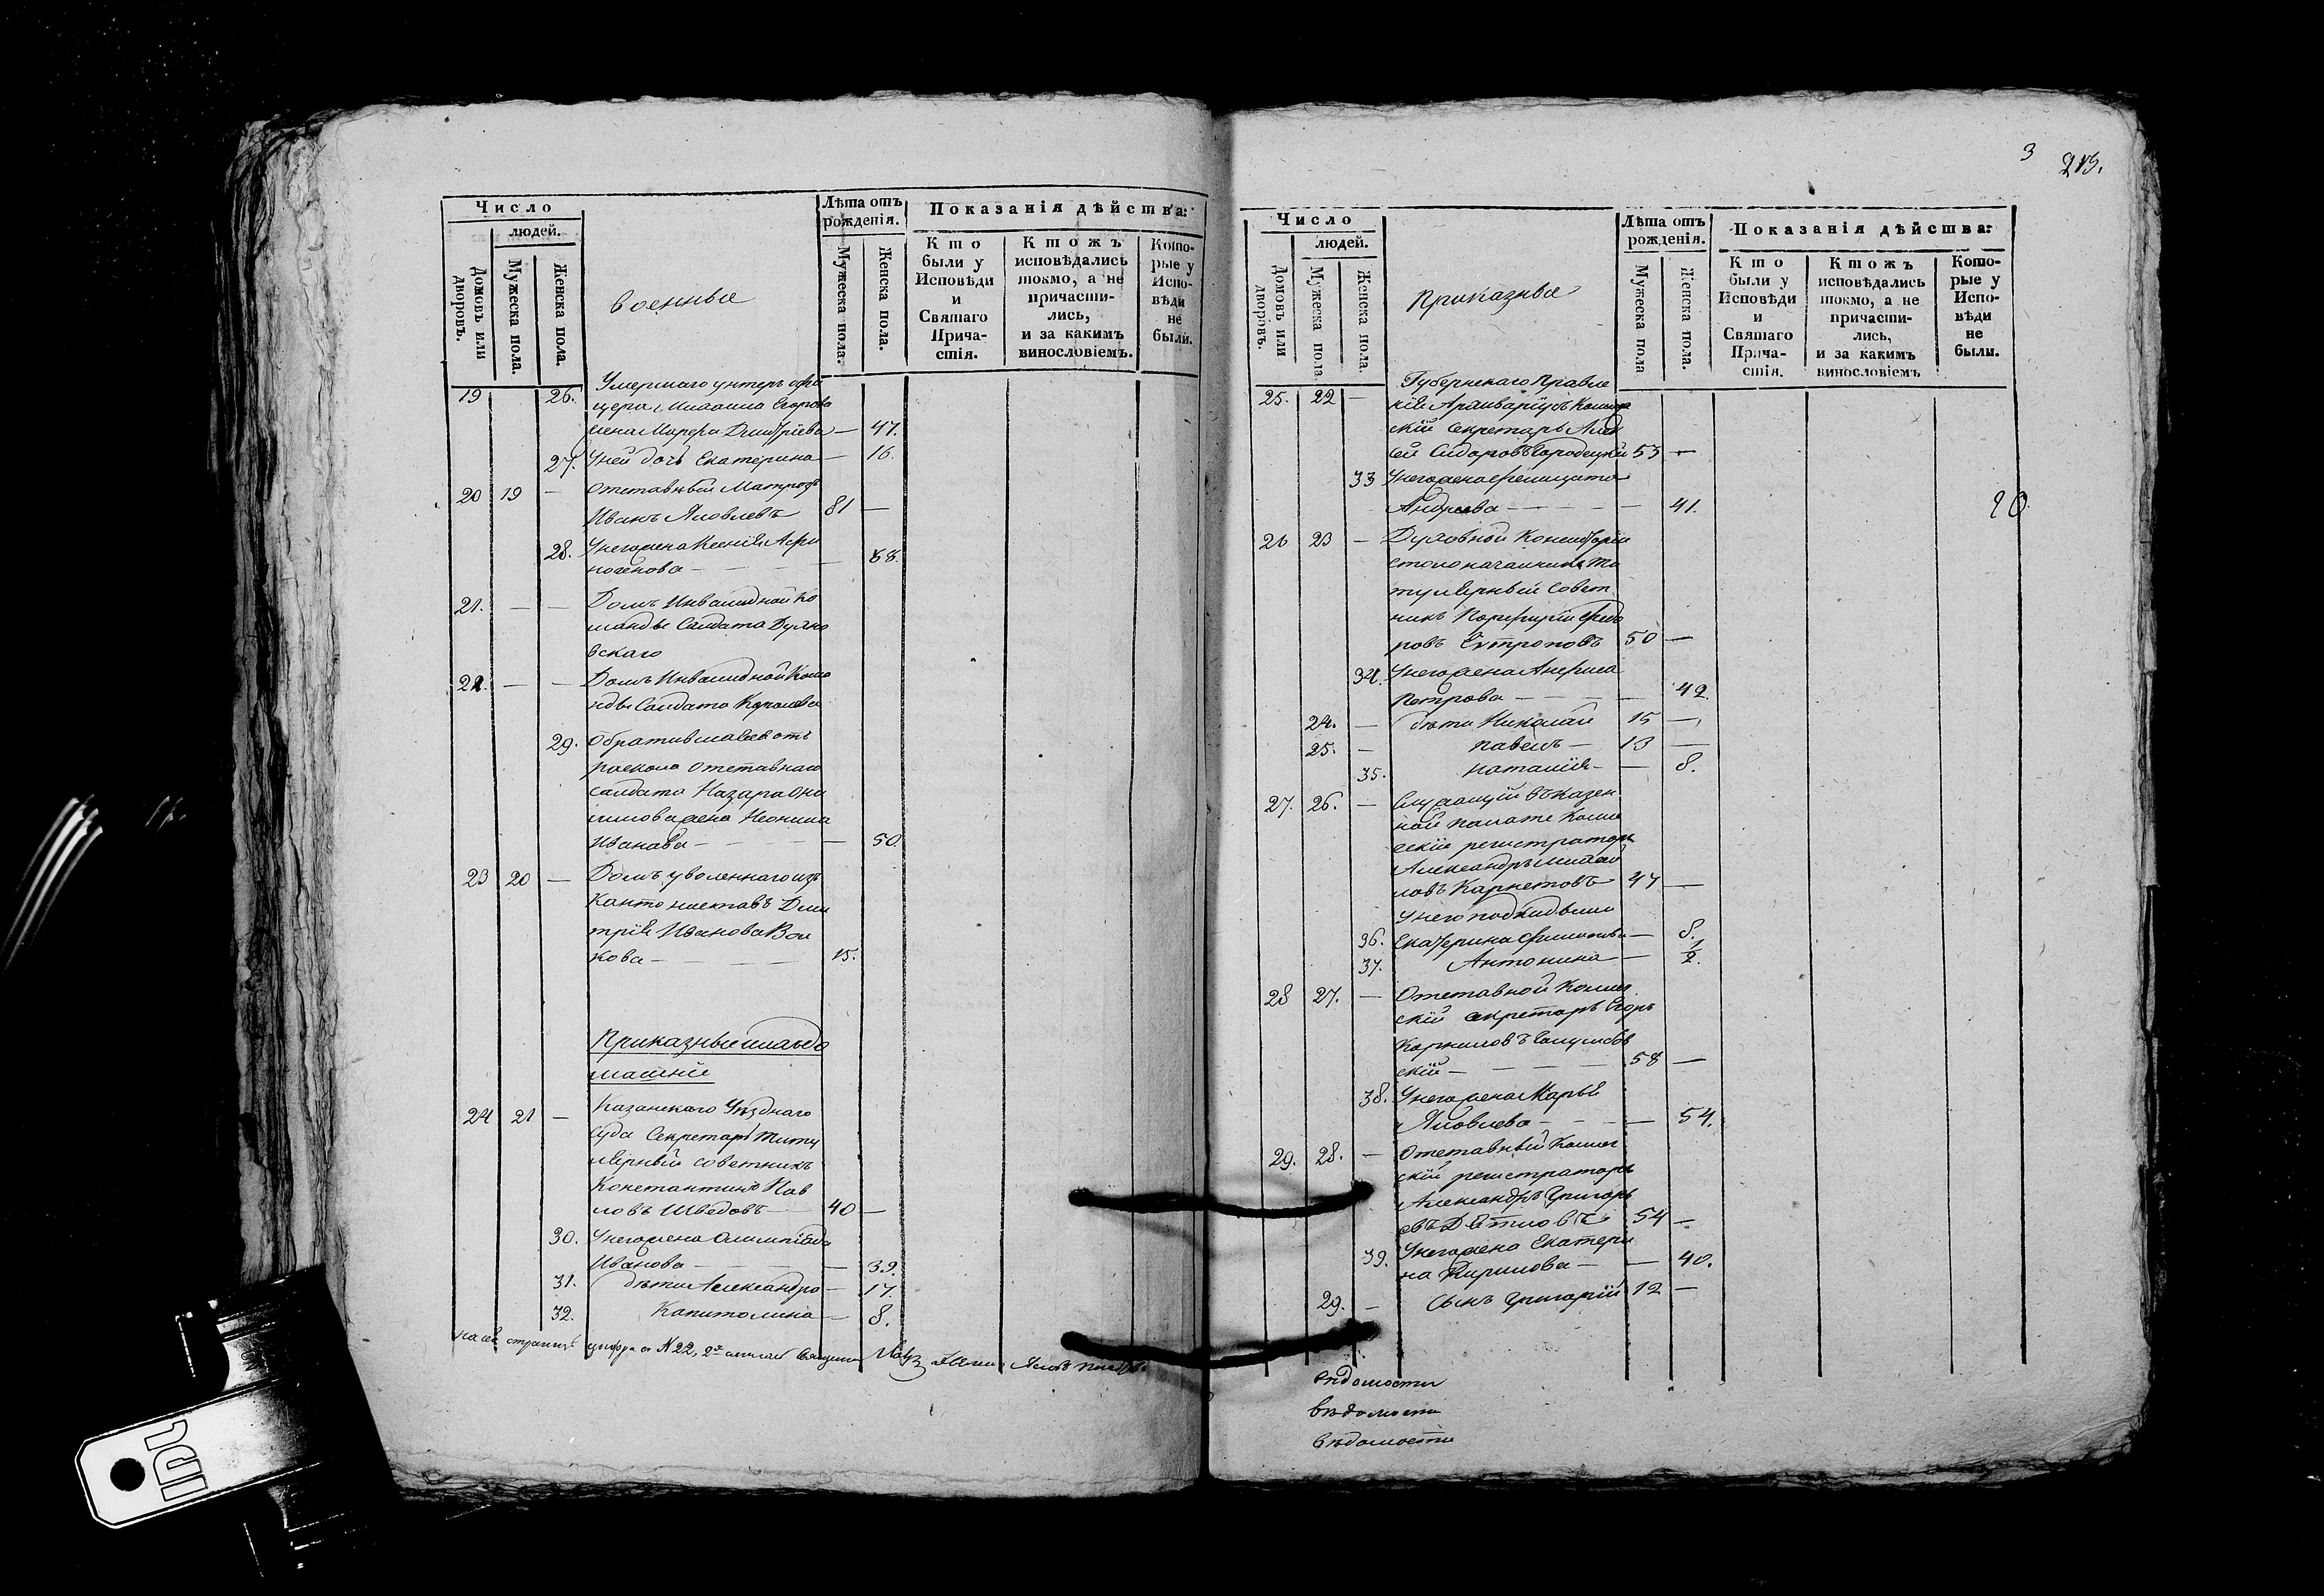 Число
людей.
Домовъ или дворовъ.
Мужеска пола.
Женска пола.
военные
Лѣта отъ рожденія.
Мужеска пола.
Женска пола.
Показанія дѣйства:
Кто были у Исповѣди и Святаго Прича-стія.
Ктожъ исповѣдались токмо, а не причасти-лись, и за какимъ винословіемъ.
Кото-рые у Испо-вѣди не были.
19 26. Умершаго унтеръ офи
цера Егорова
жена Марфа Дмитріева — 47.
27. У ней дочь Екатерина — 16.
20 19 — Отставный Матрозъ
Иванъ Яковлевъ 81 —
28. У него жена Ксенія Афи
ногенова — 68.
21. — — Домъ Инвалидной ко
манды Солдата
вскаго
22. — — Домъ Инвалидной Кома
нды Солдата Королева
29. Обратившаяся отъ
раскола отставнаго
солдата Назара Они
симова жена Неонила
Иванова — 50.
23 20 — Домъ уволеннаго изъ
Кантонистовъ Дми
трія Иванова Вол
кова — 15.
Приказные и ихъ до
машніе
24 21 — Казанскаго Уѣзднаго
Суда Секретарь Титу
лярный советникъ
Константинъ Пав
ловъ Шведовъ — 40 —
30. У него жена Олимпіада
Иванова — — 39.
31. дѣти Александра — 17.
32. Капитолина — 8.
на сей страницѣ цифра N 22, 2я
3
213.
Число
людей.
Домовъ или дворовъ.
Мужеска пола
Женска пола.
Приказные
Лѣта отъ рожденія.
Мужеска пола
Женска пола.
Показанія дѣйства:
Кто были у Исповѣди и Святаго Прича-стія.
Ктожъ исповѣдались токмо, а не причасти-лись, и за какимъ винословіемъ
Кото-рые у Испо-вѣди не были.
25. 22 — Губернскаго Правле
нія Архиваріусъ Коллеж
скій Секретарь Алек
сѣй Сидоровъ Городецкій 53 —
33 У него жена Фелицата
Андреева — — 41.
20.
26 23 — Духовной Консисторіи
столоначальникъ Ти
тулярный Совет
никъ Порфирій Федо
ровъ Евтроповъ 50 —
34. У него жена Анфиса
Петрова — — 42.
24. — дѣти Николай 15 —
25. — Павелъ — 13 —
35. Наталія — — 8.
27. 26. — Служащій въ казен
ной палате Колле
жскій регистраторъ
Александръ Михаи
ловъ 47 —
У него подкидыши
36. Екатерина Филипова — 8.
37. Антонина — 1/2.
28 27. — Отставной Коллеж
скій секретарь Егоръ
Корниловъ Голумбов
скій — 58 —
38. У него жена Марья
Яковлева — — 54.
29. 28. — Отставный Коллеж
скій регистраторъ
Александръ Григорь
евъ Дятловъ 54 —
39. У него жена Екатери
на Кирилова — — 40.
29. — Сынъ Григорій 12 —
вѣдомости
вѣдомости
вѣдомости